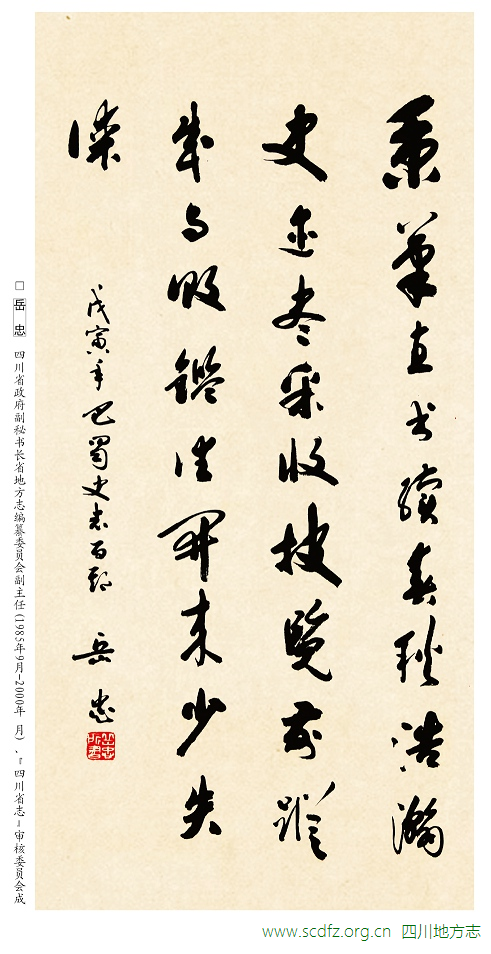 秉筆直书續春秋浩瀚
史迹尽采收披覽前蹤
成与败鑑往开来少失
謀
戊寅年巴蜀史志百
岳忠
□ 岳 忠 四川省政府副秘书长省地方志编纂委员会副主任(1985年9月-2000年 月)、『四川省志』审核委员会成
www.scdfz.org.cn 四川地方志